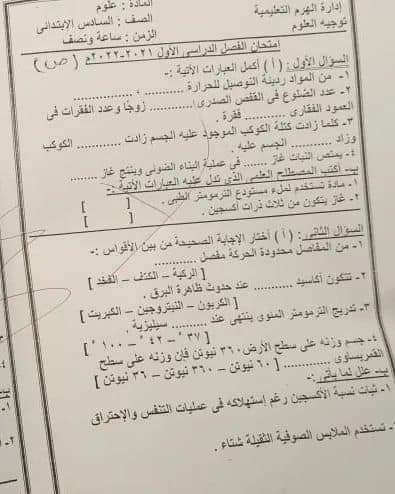 إدارة الهرم التعليمية
المادة : علوم
توجيه العلوم
الصف : السادس الابتدائى
الزمن : ساعة ونصف
امتحان الفصل الدراسي الأول ٢٠٢١-٢٠٢٢م (ص)
السؤال الأول : ( أ ) أكمل العبارات الآتية :-
١- من المواد رديئة التوصيل للحرارة ............ ، ............
٢- عدد الضلوع فى القفص الصدرى ............ زوجاً وعدد الفقرات فى
العمود الفقارى ............ فقرة .
٣- كلما زادت كتلة الكوكب الموجود عليه الجسم زادت ............ الكوكب
على الجسم ............ وزاد
٤- يمتص النبات غاز ............ فى عملية البناء الضوئى وينتج غاز ............
ب- أكتب المصطلح العلمى الذى تدل عليه العبارات الآتية :-
١- مادة تستخدم لملء مستودع الترمومتر الطبى . [ ]
٢- غاز يتكون من ثلاث ذرات أكسجين . [ ]
السؤال الثانى : ( أ ) أختر الإجابة الصحيحة من بين الأقواس :-
١- من المفاصل محدودة الحركة مفصل ............ [ الركبة – الكتف – الفخذ ]
٢- يتكون أكاسيد ............ عند حدوث ظاهرة البرق .
[ الكربون – النيتروجين – الكبريت ]
٣- تدريج الترمومتر المئوى ينتهى عند ............ سيليزية .
[ ٣٧° – ٤٢° – ١٠٠° ]
٤- جسم وزنه على سطح الأرض ٣٦٠ نيوتن فإن وزنه على سطح
القمر يساوى ............ [ ٦٠ نيوتن – ٣٦٠ نيوتن – ٣٦ نيوتن ]
ب- علل لما يأتى :-
١- ثبات نسبة الأكسجين رغم استهلاكه فى عمليات التنفس والإحتراق
تستخدم الملابس الصوفية الثقيلة شتاء .